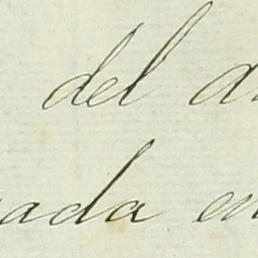 del a
ada en